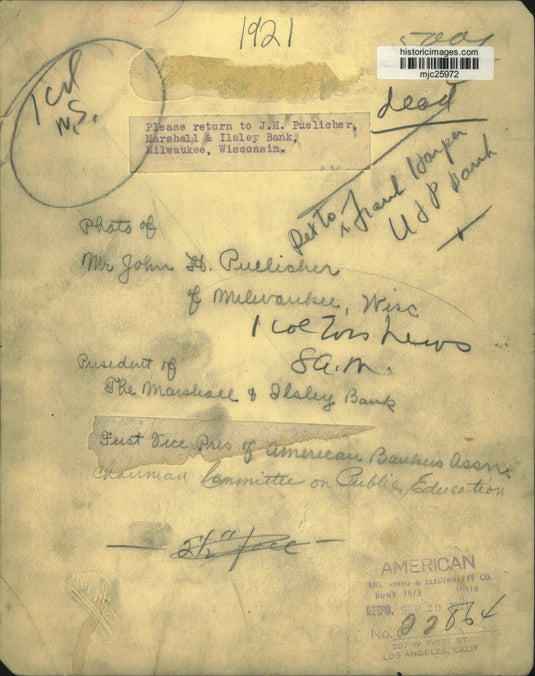 1921
historicimages.com
mjc25972
1 col
W.S.
dead
Please return to J.H. Puelicher,
Marshall & Ilsley Bank,
Milwaukee, Wisconsin.
Ret to Frank Harper
Photo of
Mr John H. Puelicher
of Milwaukee, Wisc
1 col Tors News
8 a.m.
President of
The Marshall & Ilsley Bank
First Vice Pres of American Bankers Assn.
Chairman Committee on Public Education
2½"
AMERICAN
ENGRAVING & ELECTROTYPE CO.
BDWY. 1873 10819
REC'D. SEP 20
No. 22864
227 W FIRST ST.
LOS ANGELES, CALIF.